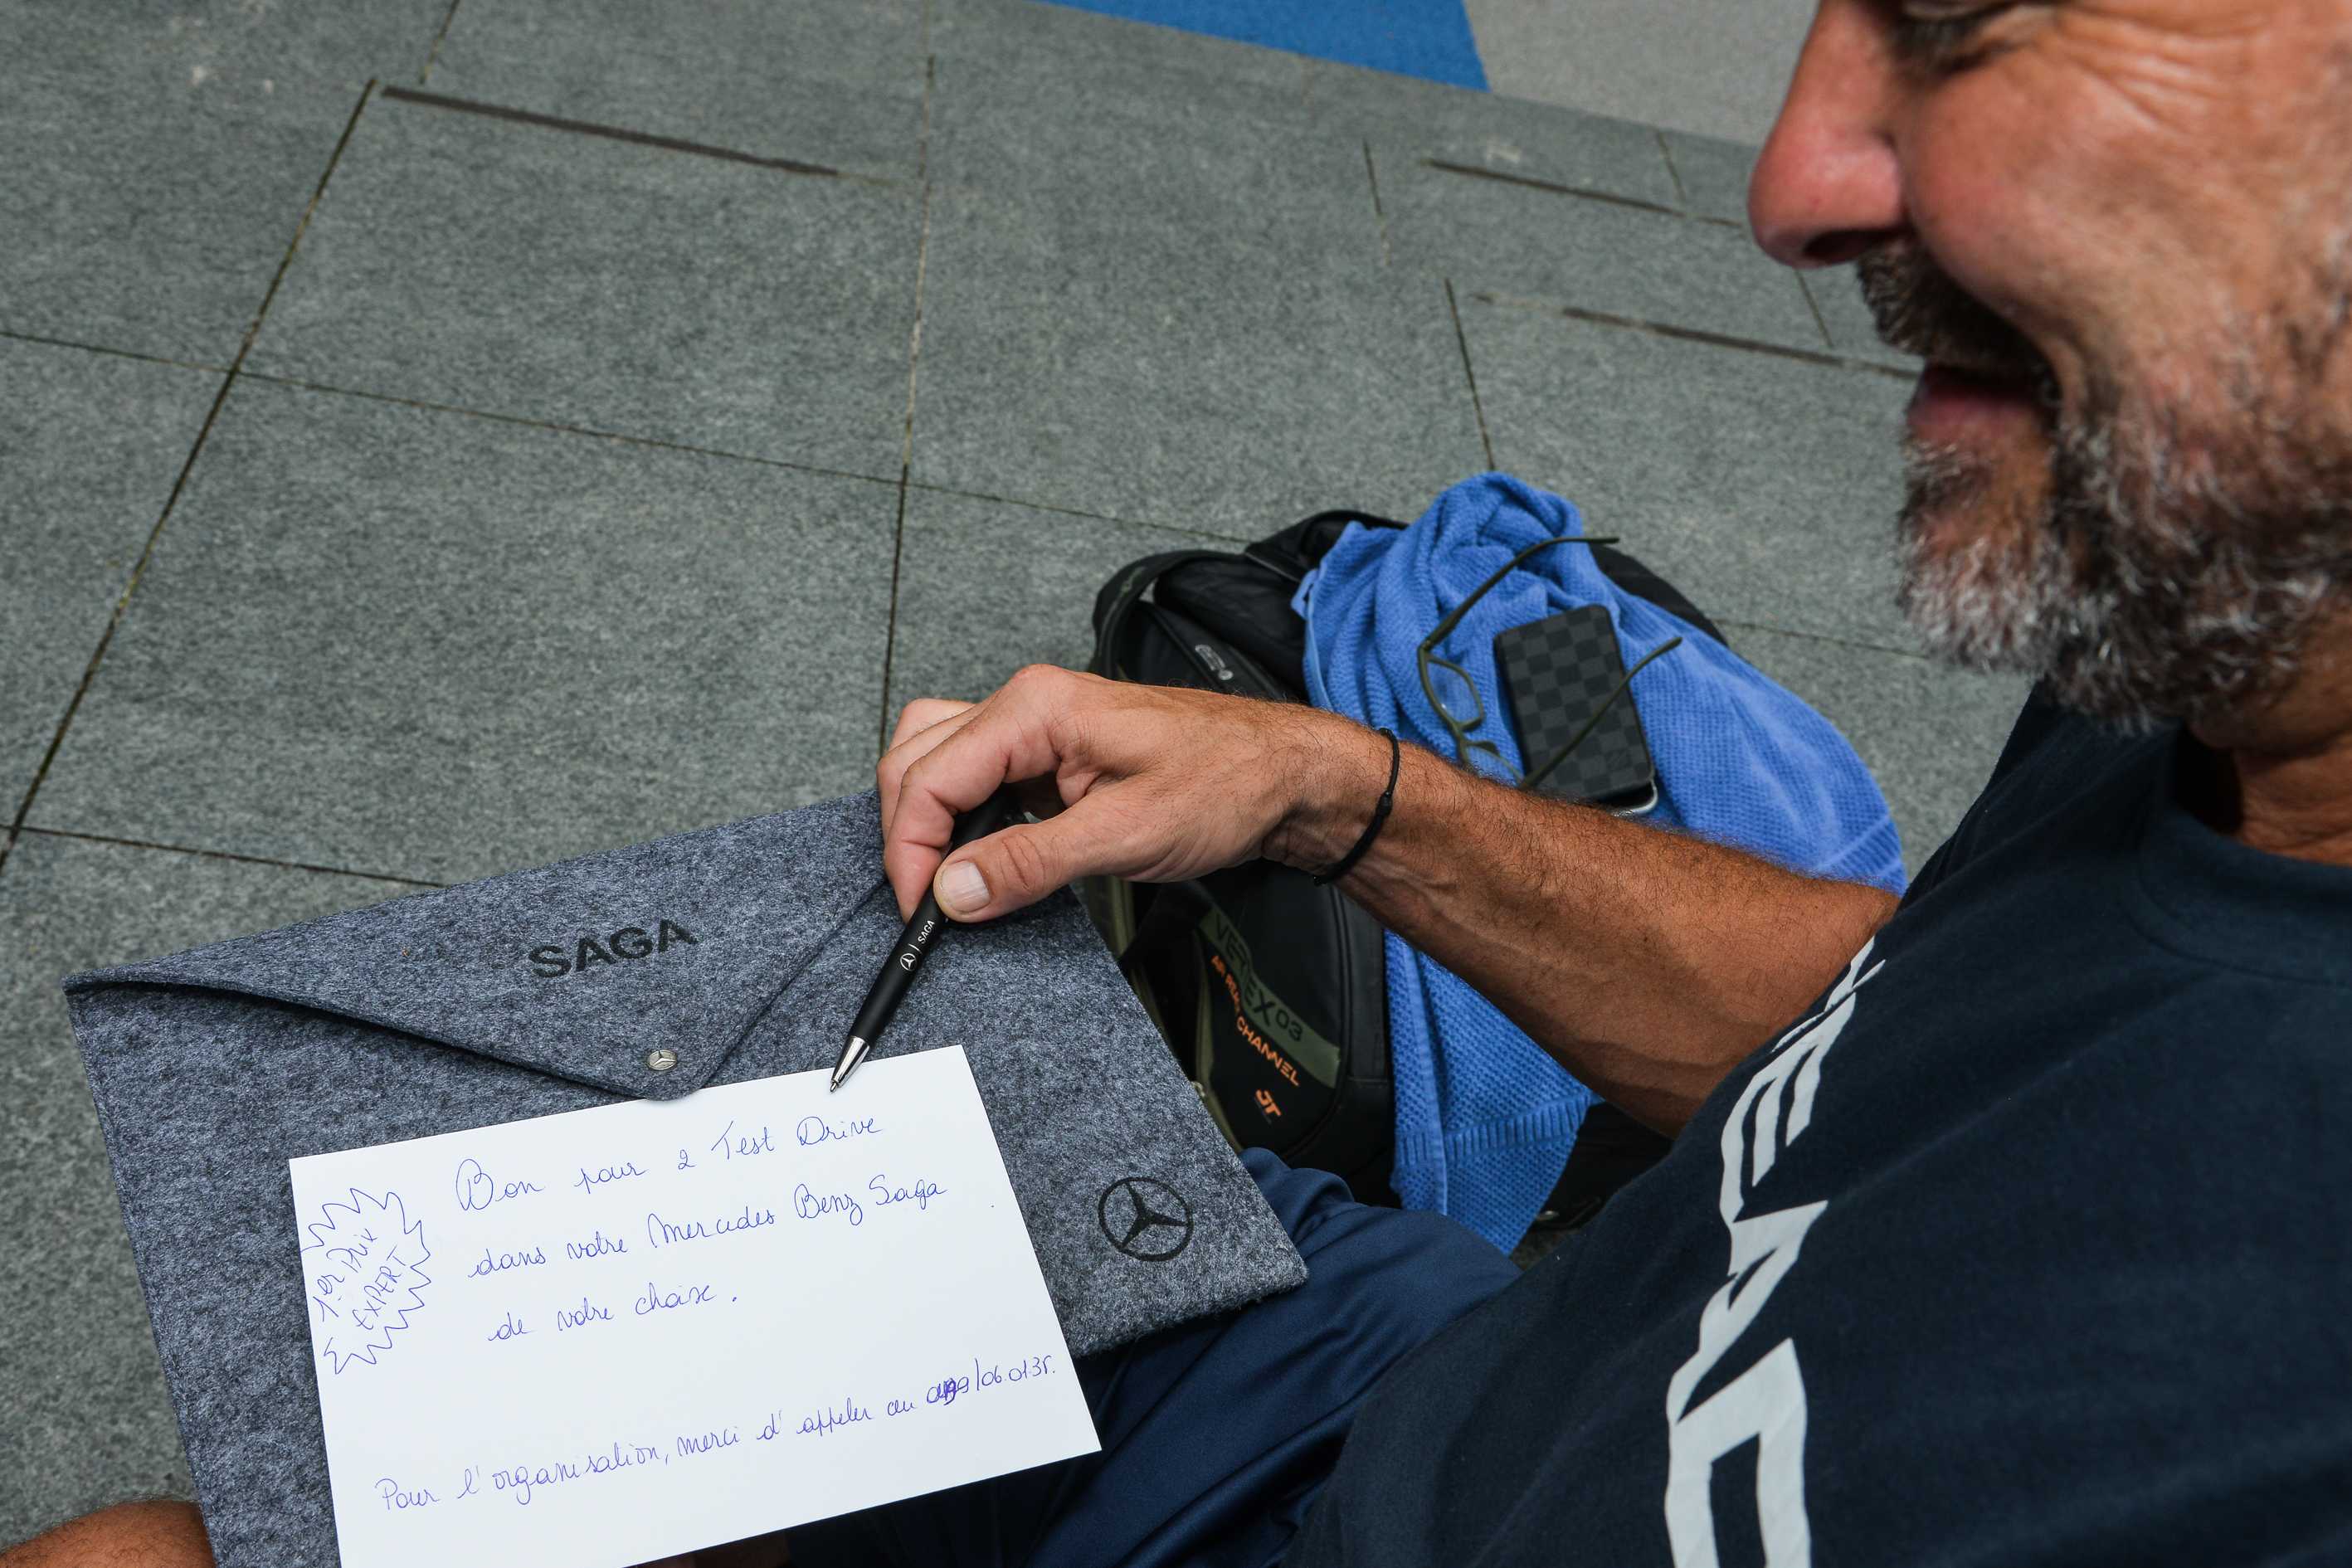 SAGA
SAGA
1er Prix
EXPERT
Bon pour 2 Test Drive
dans votre Mercedes Benz Saga
de votre choix.
Pour l'organisation, merci d'appeler au /06.0135.
VERTEX 03
AIR CHANNEL
JT
HEAD